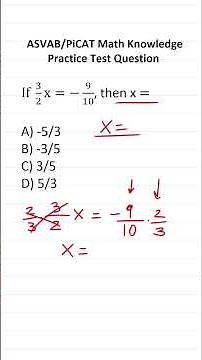 ASVAB/PiCAT Math Knowledge
Practice Test Question
If 3/2 x = − 9/10, then x =
x =
A) -5/3
B) -3/5
C) 3/5
D) 5/3
2/3 3/2 x = − 9/10 · 2/3
x =